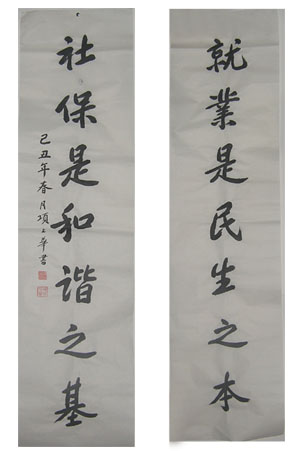 就業是民生之本
社保是和谐之基
己丑年春月項之華書